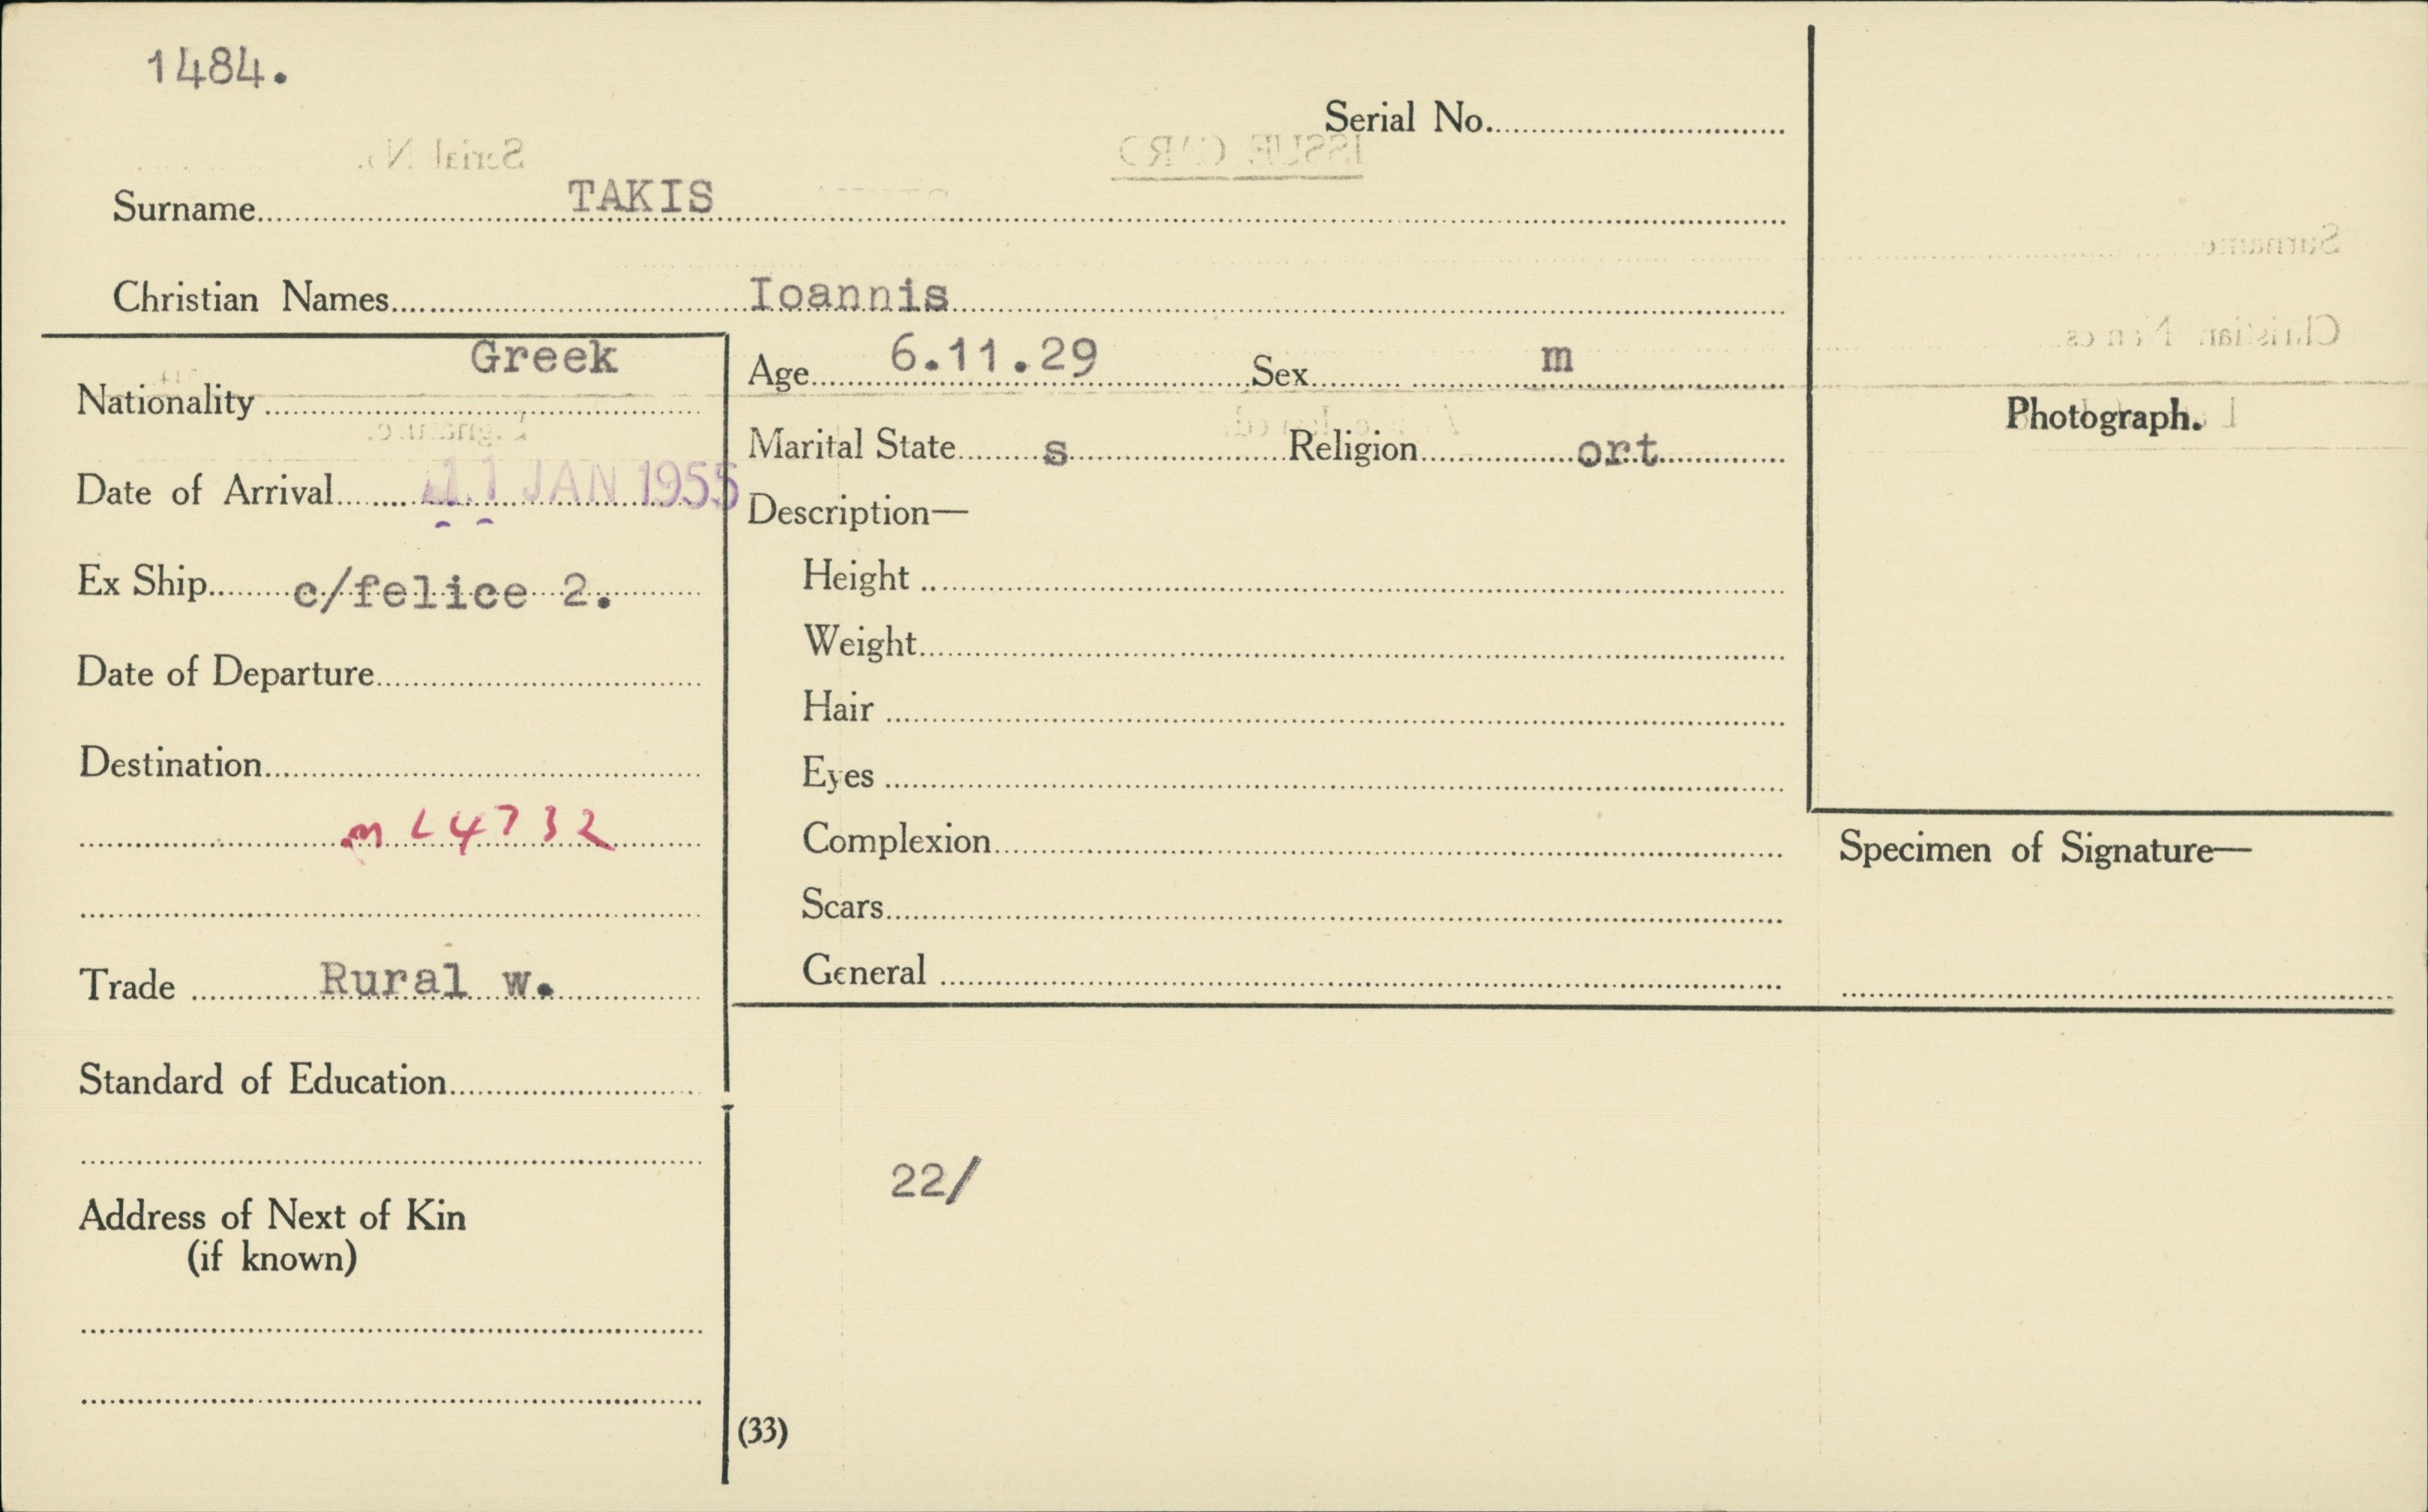 1484.
Serial No.
Surname TAKIS
Christian Names Ioannis
Nationality Greek
Date of Arrival 11 JAN 1955
Ex Ship c/felice 2.
Date of Departure
Destination
m L4732
Trade Rural w.
Standard of Education
Address of Next of Kin
(if known)
Age 6.11.29 Sex m
Marital State s Religion ort
Description—
Height
Weight
Hair
Eyes
Complexion
Scars
General
22/
(33)
Photograph.
Specimen of Signature—